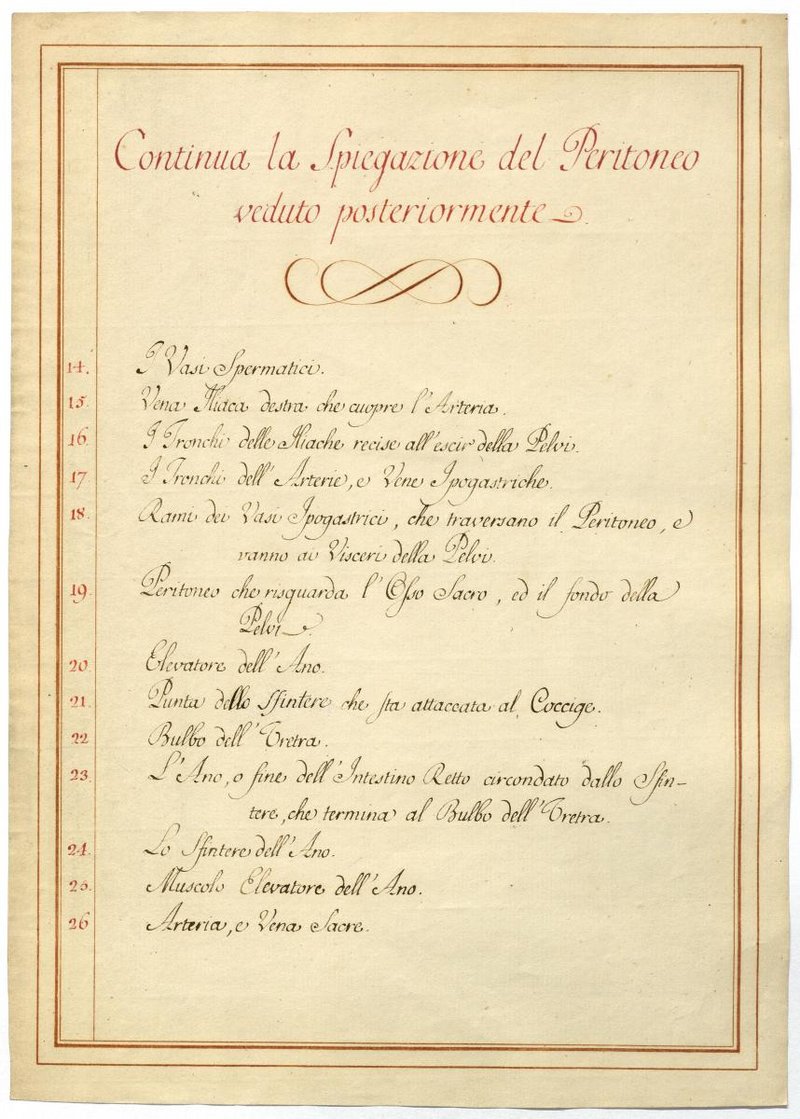 Continua la Spiegazione del Peritoneo
veduto posteriormente.
14. I Vasi Spermatici.
15. Vena Iliaca destra che cuopre l'Arteria.
16. I Tronchi delle Iliache recise all'escir della Pelvi.
17 I Tronchi dell'Arterie, e Vene Ipogastriche.
18. Rami dei Vasi Ipogastrici, che traversano il Peritoneo, e
vanno ai Visceri della Pelvi.
19. Peritoneo che risguarda l'Osso Sacro, ed il fondo della
Pelvi.
20. Elevatore dell'Ano.
21. Punta dello Sfintere che sta attaccata al Coccige.
22 Bulbo dell'Uretra.
23. L'Ano, o fine dell'Intestino Retto circondato dallo Sfin-
tere, che termina al Bulbo dell'Uretra.
24. Lo Sfintere dell'Ano.
25. Muscolo Elevatore dell'Ano.
26 Arteria, e Vena Sacre.